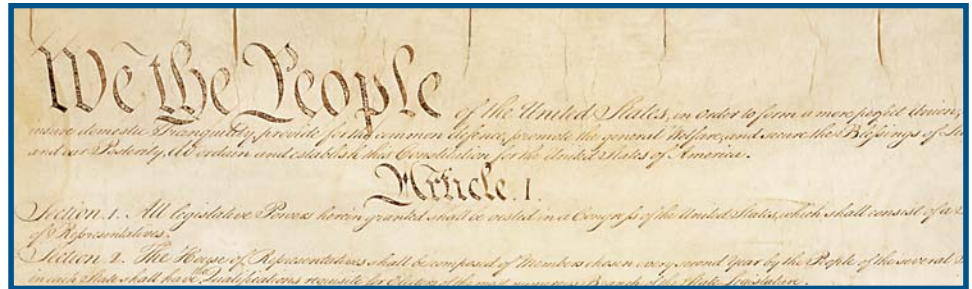 We the People of the United States, in order to form a more perfect Union,
insure domestic Tranquility, provide for the common defence, promote the general Welfare, and secure the Blessings of
and our Posterity, do ordain and establish this Constitution for the United States of America.
Article. I.
Section. 1. All legislative Powers herein granted shall be vested in a Congress of the United States, which shall consist of a
of Representatives.
Section. 2. The House of Representatives shall be composed of Members chosen every second Year by the People of the several
in each State shall have the Qualifications requisite for Electors of the most numerous Branch of the State Legislature.